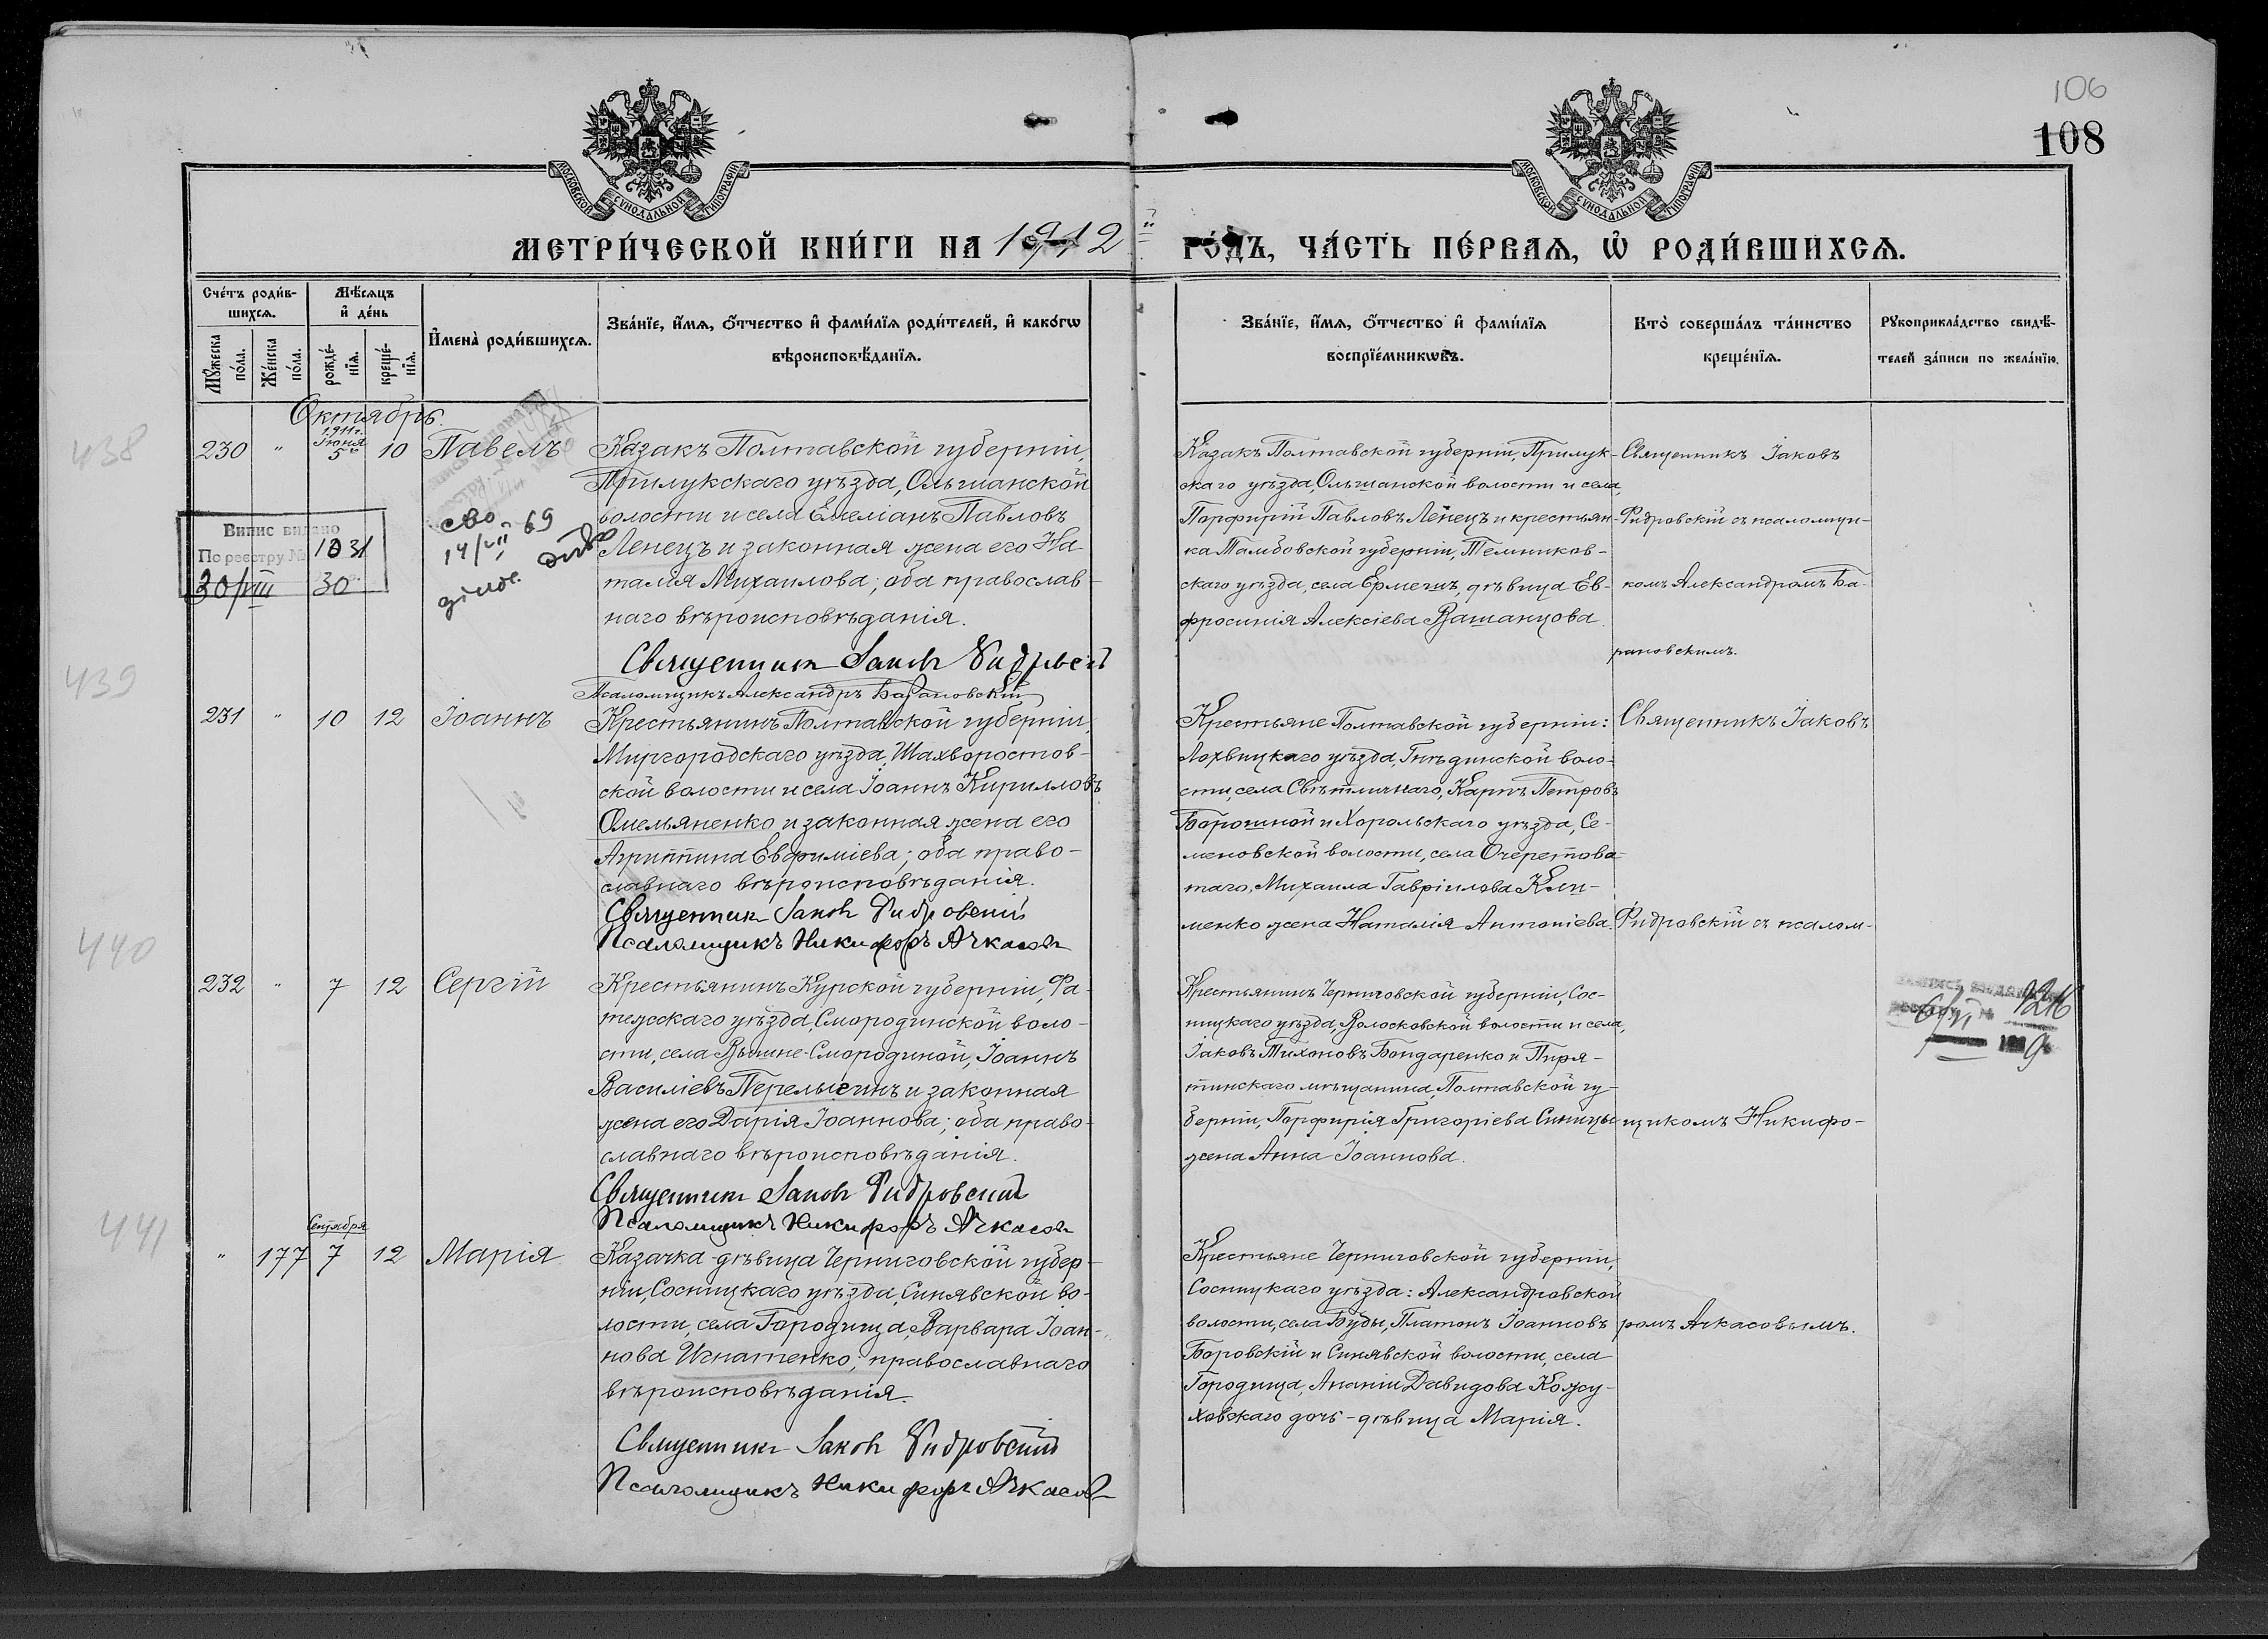 106
108
МОСКОВСКОЙ СѴНОДАЛЬНОЙ ТИПОГРАФІИ
МОСКОВСКОЙ СѴНОДАЛЬНОЙ ТИПОГРАФІИ
МЕТРИ́ЧЕСКОЙ КНИ́ГИ НА 1912й ГО́ДЪ, ЧА́СТЬ ПЕ́РВАѦ, Ѡ҆ РОДИ́ВШИХСѦ.
Сче́тъ роди́в-
шихсѧ.
Мꙋ́жеска по́ла.
Же́нска по́ла.
Мѣ́сѧцъ
и҆ де́нь
рожде́-
нїѧ.
креще́-
нїѧ.
И҆мена̀ роди́вшихсѧ.
Зва́нїе, и҆́мѧ, ѻ҆́тчество и҆ фами́лїѧ роди́телей, и҆ како́гѡ
вѣроисповѣ́данїѧ.
Зва́нїе, и҆́мѧ, ѻ҆́тчество и҆ фами́лїѧ
воспрїе́мникѡвъ.
Кто̀ соверша́лъ та́инство
креще́нїѧ.
Рꙋкоприкла́дство свидѣ́-
телей за́писи по жела́нїю.
Октябрь.
438
230 " 1911г. Іюня 5го 10 Павелъ
Казакъ Полтавской губерніи,
Прилукскаго уѣзда, Ольшанской
волости и села Емеліанъ Павловъ
Ленецъ и законная жена его На-
талія Михаилова; оба православ-
наго вѣроисповѣданія.
Священникъ Іаковъ Фидровскій
Псаломщикъ Александръ Барановскій
Казакъ Полтавской губерніи, Прилук-
скаго уѣзда, Ольшанской волости и села,
Порфирій Павловъ Ленецъ и крестьян-
ка Тамбовской губерніи, Темников-
скаго уѣзда, села Ермешъ, дѣвица Ев-
фросинія Алексіева Вашанцова.
Священникъ Іаковъ
Фидровскій съ псаломщи-
комъ Александромъ Ба-
рановскимъ.
Випис видано
По реестру № 1031
30/VIII 30
сво
14/VII 69
439
231 " 10 12 Іоаннъ
Крестьянинъ Полтавской губерніи,
Миргородскаго уѣзда, Шахворостов-
ской волости и села Іоаннъ Кирилловъ
Омельяненко и законная жена его
Агриппина Евфиміева; оба право-
славнаго вѣроисповѣданія.
Священникъ Іаковъ Фидровскій
Псаломщикъ Никифоръ Ачкасовъ
Крестьяне Полтавской губерніи:
Лохвицкаго уѣзда, Гнѣдинской воло-
сти, села Свѣтличнаго, Карпъ Петровъ
Борошной и Хорольскаго уѣзда, Се-
меновской волости, села Очеретова-
таго, Михаила Гавріилова Кли-
менко жена Наталія Антоніева.
Священникъ Іаковъ
Фидровскій съ псалом-
440
232 " 7 12 Сергій
Крестьянинъ Курской губерніи, Фа-
тежскаго уѣзда, Смородинской воло-
сти, села Смородиной, Іоаннъ
Василіевъ Перелыгинъ и законная
жена его Дарія Іоаннова; оба право-
славнаго вѣроисповѣданія.
Священникъ Іаковъ Фидровскій
Псаломщикъ Никифоръ Ачкасовъ
Крестьянинъ Черниговской губерніи, Сос-
ницкаго уѣзда, Волосковской волости и села,
Іаковъ Тихоновъ Бондаренко и Пиря-
тинскаго мѣщанина, Полтавской гу-
берніи, Порфирія Григоріева Синицы
жена Анна Іоаннова.
щикомъ Никифо-
1216
6/VI
441
" 177 Сентября 7 12 Марія
Казачка-дѣвица Черниговской губер-
ніи, Сосницкаго уѣзда, Синявской во-
лости, села Городища, Варвара Іоан-
нова Игнатенко; православнаго
вѣроисповѣданія.
Священникъ Іаковъ Фидровскій
Псаломщикъ Никифоръ Ачкасовъ
Крестьяне Черниговской губерніи,
Сосницкаго уѣзда: Александровской
волости, села Буды, Платонъ Іоанновъ
Боровскій и Синявской волости, села
Городища, Ананіи Давидова Кожу-
ховскаго дочь-дѣвица Марія.
ромъ Ачкасовымъ.